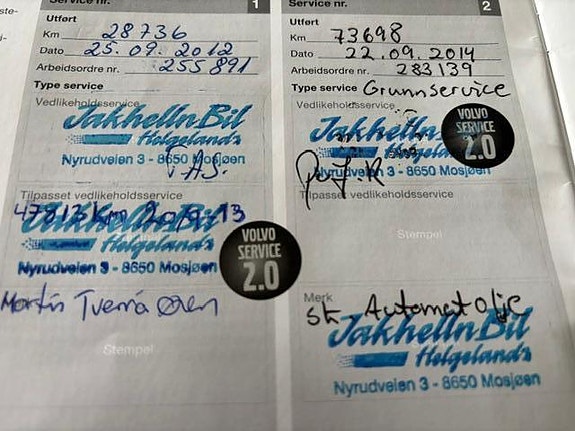 Service nr. 1
Utført
Km 28736
Dato 25.09.2012
Arbeidsordre nr. 255891
Type service
Vedlikeholdsservice
Jakhelln Bil
Helgeland AS
Nyrudveien 3 - 8650 Mosjøen
Tilpasset vedlikeholdsservice
47813 Km 20/9-13
Jakhelln Bil
Helgeland AS
Nyrudveien 3 - 8650 Mosjøen
VOLVO
SERVICE
2.0
Martin
Stempel
Service nr. 2
Utført
Km 73698
Dato 22.09.2014
Arbeidsordre nr. 283139
Type service Grunnservice
Vedlikeholdsservice
Jakhelln
Nyrudveien 3 - 8650 Mosjøen
VOLVO
SERVICE
2.0
Tilpasset vedlikeholdsservice
Stempel
Merk
sk Automatolje
Jakhelln Bil
Helgeland AS
Nyrudveien 3 - 8650 Mosjøen